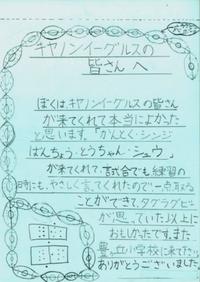 キヤノンイーグルスの
皆さんへ
ぼくは、キヤノンイーグルスの皆さん
が来てくれて本当によかった
と思います。「かんとく・シンジ
はんちょう・とうちゃん・シュウ」
が来てくれて、試合でも練習の
時にも、やさしく言てくれたので一点取る
ことができて、タグラグビー
が思っていた以上に
おもしろかったです。また
豊丘小学校に来て下さい
ありがとうございました。